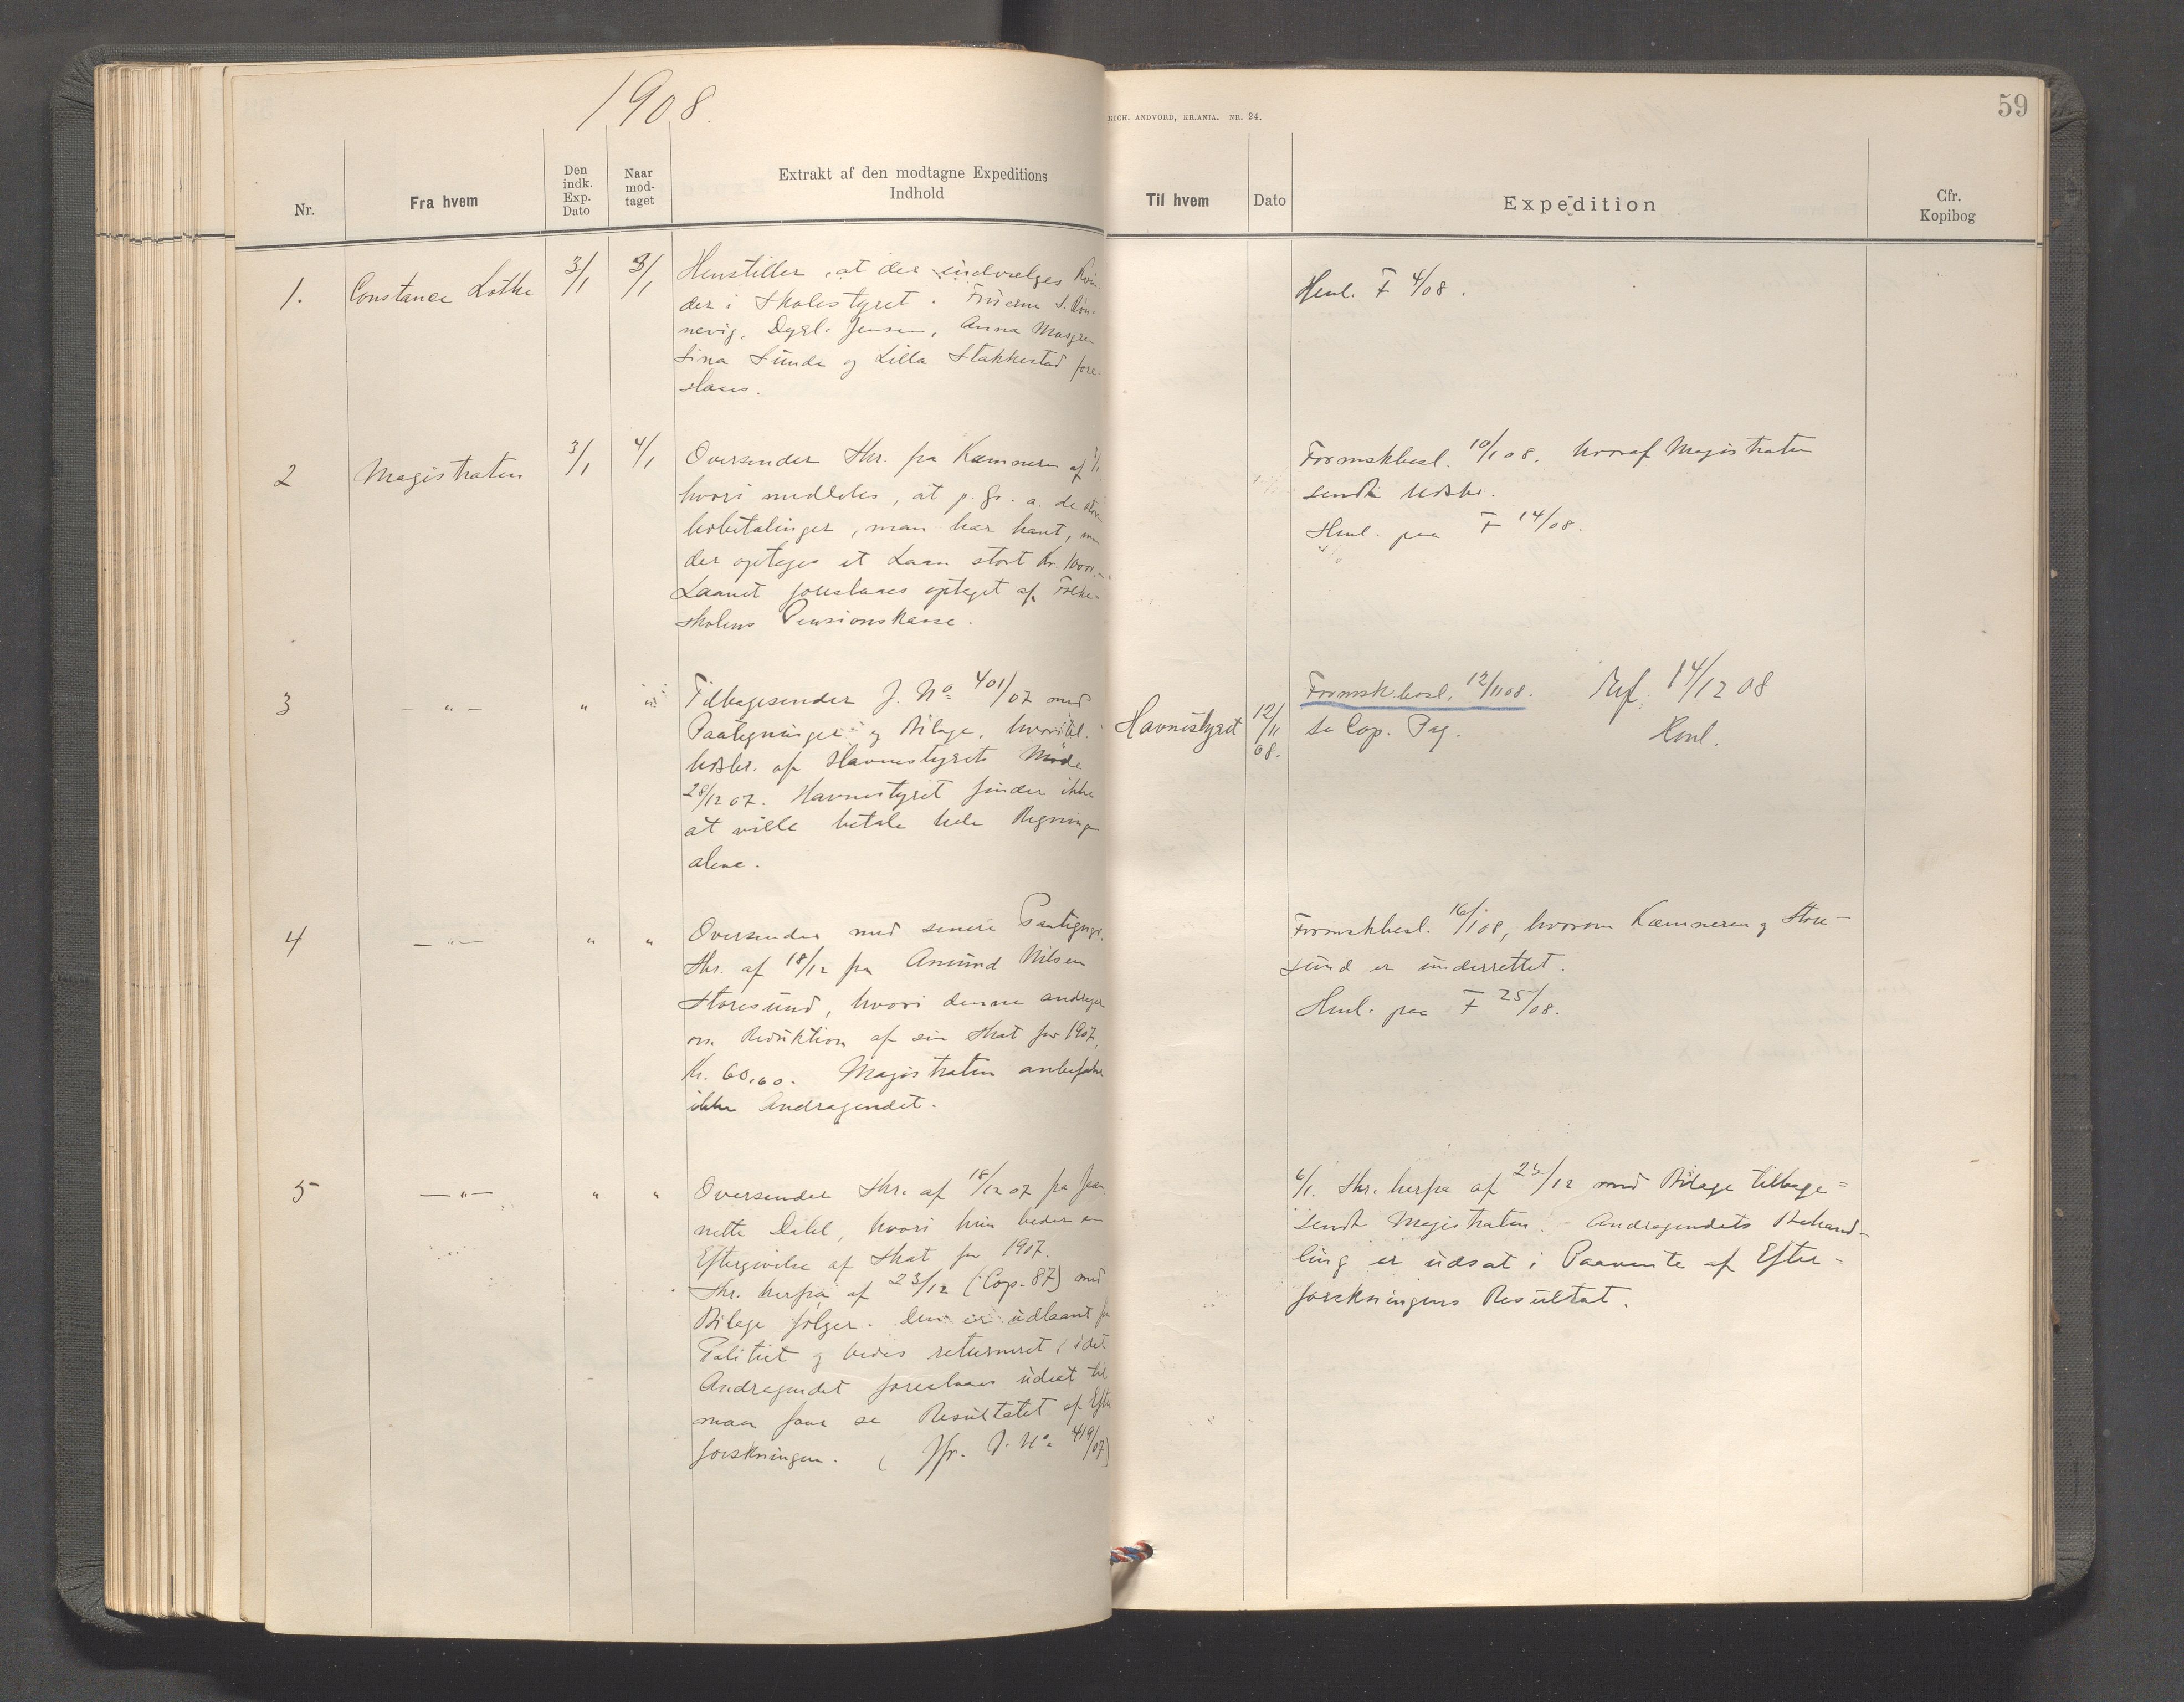 1908.
RICH. ANDVORD, KR.ANIA. NR. 24.
59
Nr.
Fra hvem
Den indk. Exp. Dato
Naar mod-taget
Extrakt af den modtagne Expeditions
Indhold
Til hvem
Dato
Expedition
Cfr.
Kopibog
1.
Constance Lothe
3/1
3/1
Henstiller, at der indvælges Kvin-
der i Skolestyret. Fruerne S. Røn-
nevig, Jensen, Anna
Sina Sunde og Lilla Stakkestad fore-
slaaes.
Henl. F 4/08.
2
Magistraten
3/1
4/1
Oversender Skr. fra Kæmneren af
hvori meddeles, at p. gr. a. de store
Udbetalinger, man har havt, maa
der optages et Laan stort Kr.
Laanet foreslaaes optaget af Folke-
skolens Pensionskasse.
Formskbesl. 10/1 08, hvoraf Magistraten
sendt Udskr.
Henl. paa F 14/08.
3
— " —
"
"
Tilbagesender J. No 401/07 med
Paategninger og Bilage, hvoribl.
Udskr. af Havnestyrets Møde
28/12 07. Havnestyret finder ikke
at ville betale hele Regningen
alene.
Havnestyret
12/11 08.
Formsk.besl. 12/11 08.
se Cop. Pag.
Ref. 14/12 08
Henl.
4
— " —
"
"
Oversender med senere Paategngr.
Skr. af 18/12 fra Amund Nilsen
Storesund, hvori denne andrager
om Reduktion af sin Skat for 1907,
Kr. 60,60. Magistraten anbefaler
ikke Andragendet.
Formskbesl. 16/1 08, hvorom Kæmneren og Store-
sund er underrettet.
Henl. paa F 25/08.
5
— " —
"
"
Oversender Skr. af 18/12 07 fra Jean
nette Dahl, hvori hun beder om
Eftergivelse af Skat for 1907.
Skr. herfra af 23/12 (Cop. 87) med
Bilage følger. Den er udlaant fra
Politiet og bedes returneret, idet
Andragendet foreslaaes udsat til
man faar se Resultatet af Efter
forskningen. (Jfr. J. No 419/07)
6/1. Skr. herfra af 23/12 med Bilage tilbage=
sendt Magistraten. Andragendets Behand-
ling er udsat i Paavente af Efter-
forskningens Resultat.